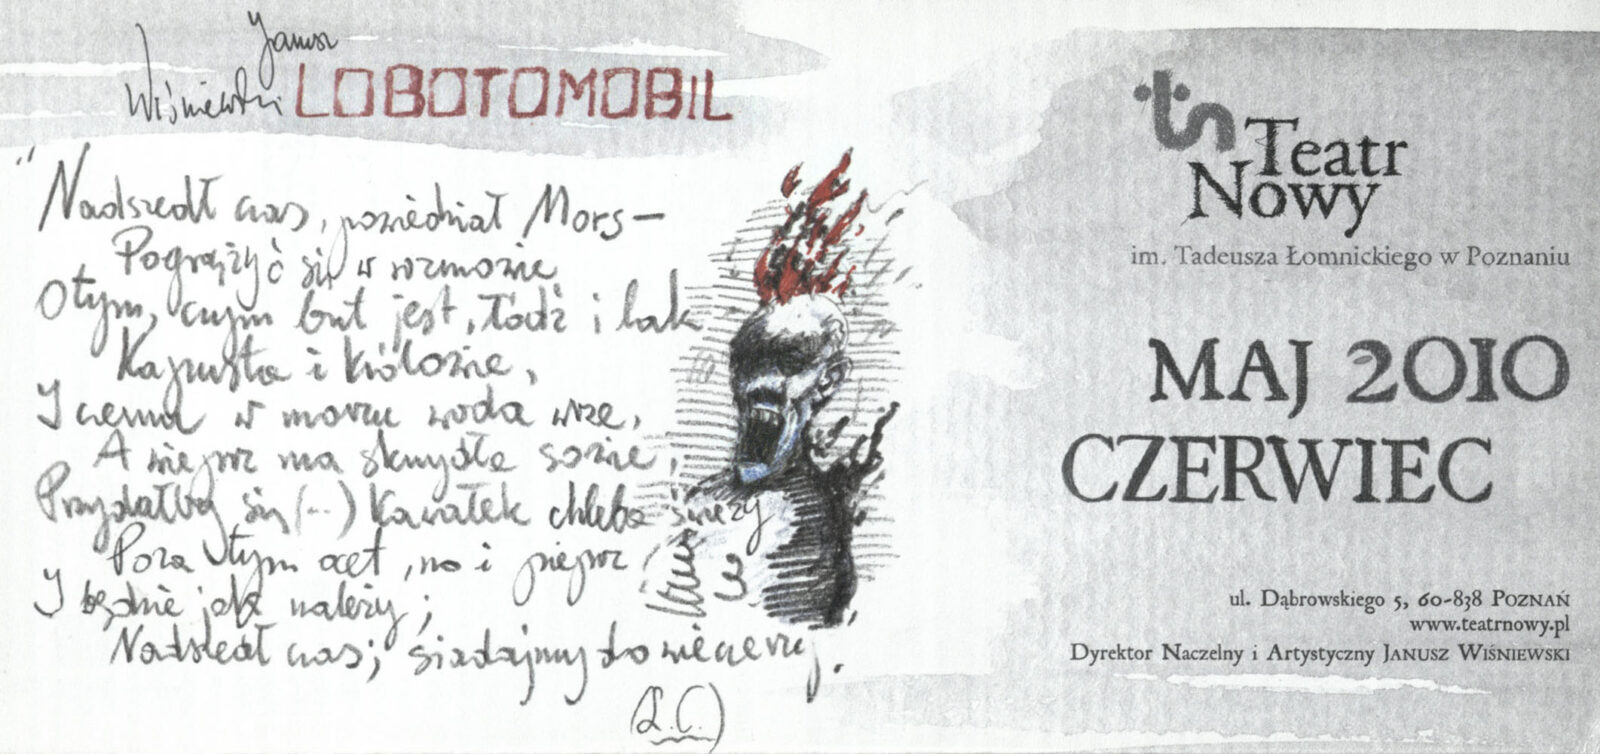 Janusz
Wiśniewski LOBOTOMOBIL
"Nadszedł czas, powiedział Mors –
Pogrążyć się w rozmowie
O tym, czym but jest, łódź i lak
Kapusta i królowie,
I czemu w morzu woda wrze,
A wieprz ma skrzydła sowie,
Przydałby się (...) kawałek chleba świeży
Poza tym ocet, no i pieprz
I będzie jak należy;
Nadszedł czas; siadajmy do wieczerzy.
(L.C.)
Teatr
Nowy
im. Tadeusza Łomnickiego w Poznaniu
MAJ 2010
CZERWIEC
ul. Dąbrowskiego 5, 60-838 POZNAŃ
www.teatrnowy.pl
Dyrektor Naczelny i Artystyczny JANUSZ WIŚNIEWSKI